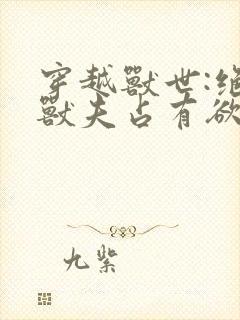 穿越獸世:絕
獸夫占有欲
九紫